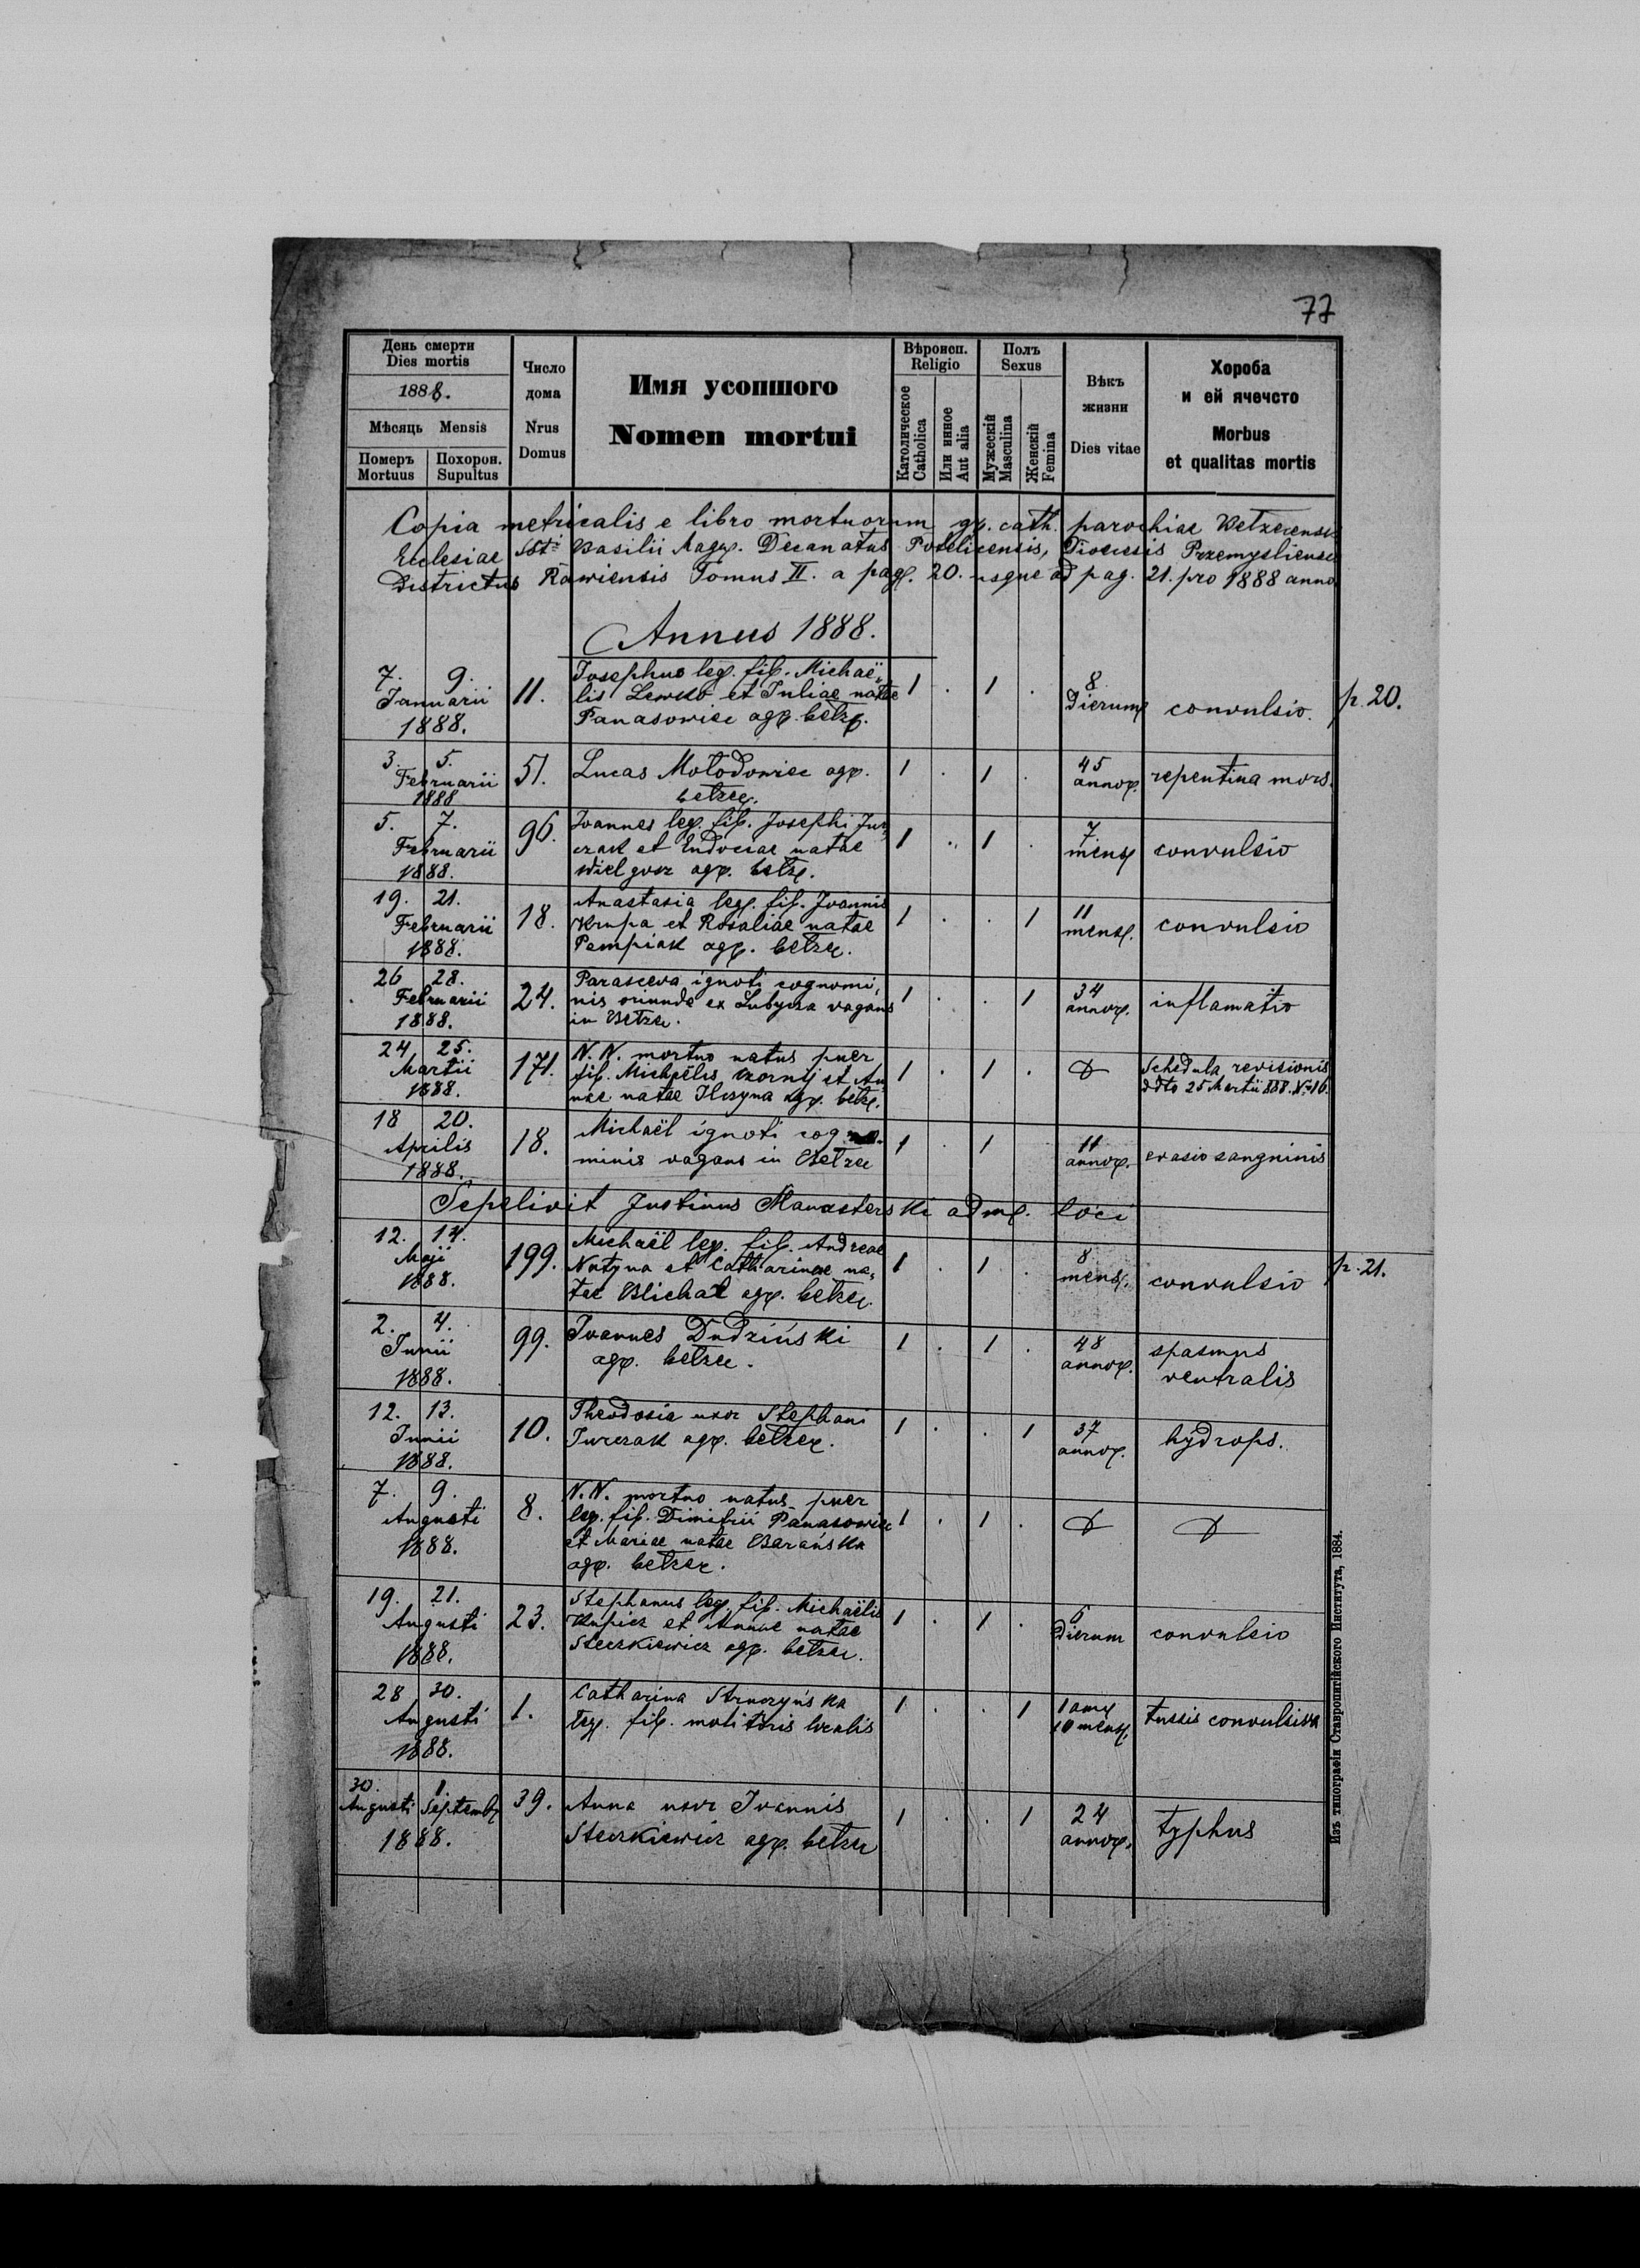 77
День смерти
Dies mortis
1888.
Мѣсяць Mensis
Померъ Похорон.
Mortuus Supultus
Число
дома
Nrus
Domus
Имя усопшого
Nomen mortui
Вѣроисп.
Religio
Католическое
Catholica
Или инное
Aut alia
Полъ
Sexus
Мужескій
Masculina
Женскій
Femina
Вѣкъ
жизни
Dies vitae
Хороба
и ей ячечсто
Morbus
et qualitas mortis
Copia metricalis e libro mortuorum gr. cath. parochiae Betzecensis
Ecclesiae Sti Basilii Magn. Decanatus Potelicensis, Diocesis Przemysliensis
Districtus Rawiensis Tomus II. a pag. 20. usque ad pag. 21. pro 1888 anno
Annus 1888.
7. 9.
Januarii
1888.
11.
Josephus leg. fil. Michaë-
lis Lewko et Juliae natae
Panasowiec agr. betz.
1 . 1 .
8
Dierum
convulsio.
p. 20.
3. 5.
Februarii
1888
51.
Lucas Mołodowiec agr.
betzec.
1 . 1 .
45
annor.
repentina mors.
5. 7.
Februarii
1888.
96.
Joannes leg. fil. Josephi Jur-
czak et Eudociae natae
Wielgosz agr. betz.
1 . 1 .
7.
mens.
convulsio
19. 21.
Februarii
1888.
18.
Anastasia leg. fil. Joannis
Krupa et Rosaliae natae
Pempiak agr. betzec.
1 . . 1
11
mens.
convulsio
26 28.
Februarii
1888.
24.
Parasceva ignoti cognomi-
nis oriunda ex Lubycza vagans
in Betzec.
1 . . 1
34
annor.
inflamatio
24 25.
Martii
1888.
171.
N. N. mortuo natus puer
fil. Michaëlis Czornij et An
nae natae agr. betz.
1 . 1 .
Schedula revisionis
ddto 25 Martii 888. N 16.
18 20.
Aprilis
1888.
18.
Michaël ignoti cogno-
minis vagans in Betzec
1 . 1
11
annor.
evasio sanguinis
Sepelivit Justinus Manasterski adm. loci
12. 14.
Maji
1888.
199.
Michaël leg. fil. Andreae
Natyna et Catharinae na-
tae Blichat agr. betzec.
1 . 1 .
8
mens.
convulsio
p. 21.
2. 4.
Junii
1888.
99.
Joannes Dudziński
agr. betzec.
1 . 1 .
48
annor.
spasmus
ventralis
12. 13.
Junii
1888.
10.
Theodosia uxor Stephani
Jurczak agr. betzec.
1 . . 1
37
annor.
hydrops.
7. 9.
Augusti
1888.
8.
N. N. mortuo natus puer
leg. fil. Dimitrii Panasowiec
et Mariae natae Barańska
agr. betzec.
1 . 1 .
19. 21.
Augusti
1888.
23.
Stephanus leg. fil. Michaëlis
Kupicz et Annae natae
Steczkiewicz agr. betzec.
1 . 1 .
6
Dierum
convulsio
28 30.
Augusti
1888.
1.
Catharina Struczyńska
leg. fil. molitoris localis
1 . . 1
1 anni
10 mens.
tussis convulsiva
30. 1
Augusti Septemb.
1888.
39.
Anna uxor Joannis
Steczkiewicz agr. betzec
1 . . 1
24
annor.
typhus
Изъ типографіи Ставропигійского Института, 1884.